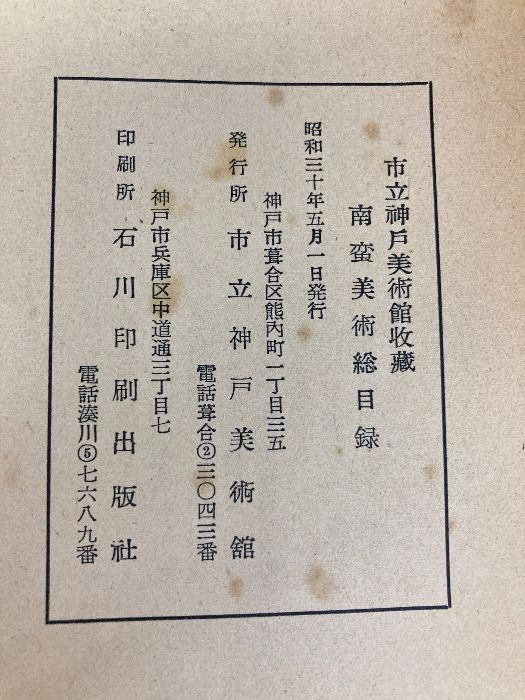 市立神戸美術館收藏
南蛮美術総目録
昭和三十年五月一日発行
神戸市葺合区熊内町一丁目三五
発行所 市立神戸美術館
電話葺合②三〇四三番
神戸市兵庫区中道通三丁目七
印刷所 石川印刷出版社
電話湊川⑤七六八九番